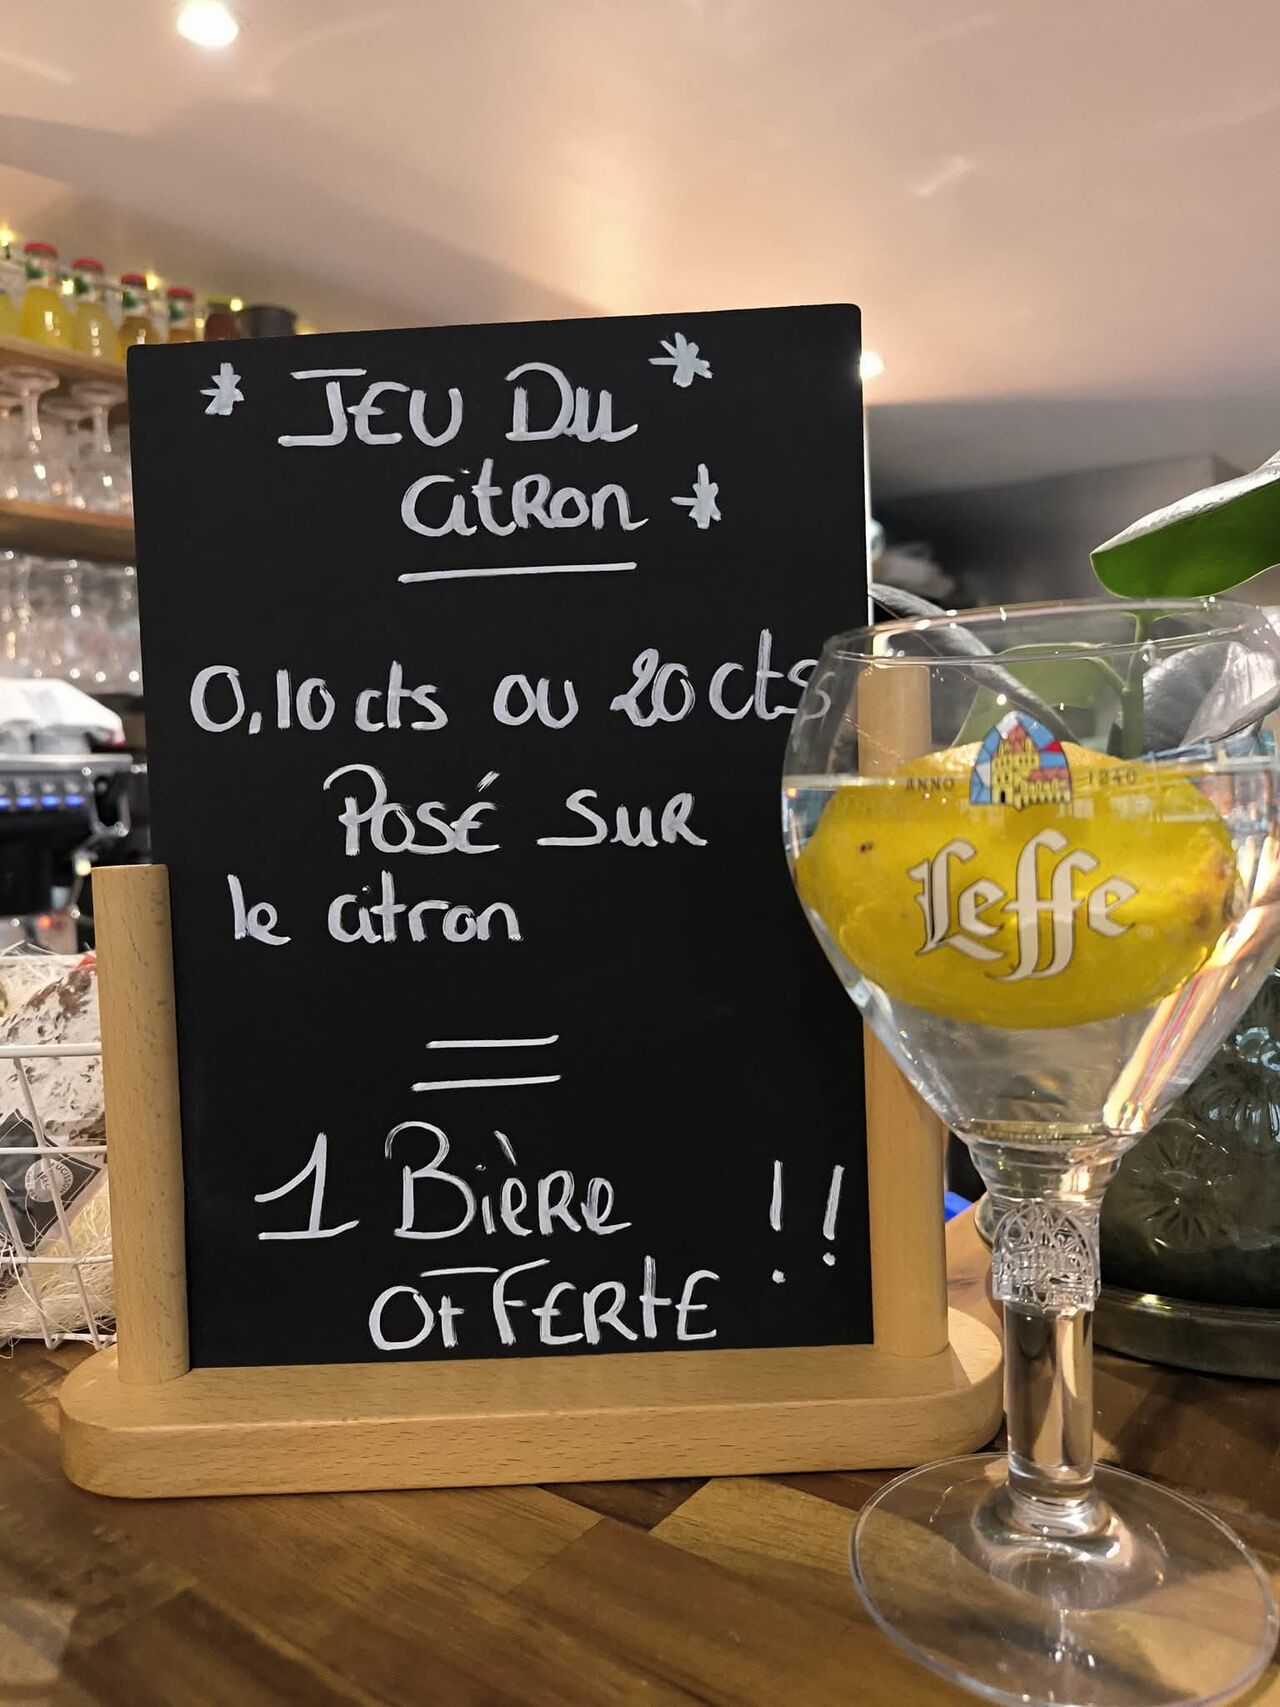 * JEU DU *
citron *
0,10 cts ou 20 cts
Posé sur
le citron
=
1 Bière !!
OFFERTE
ANNO 1240
Leffe